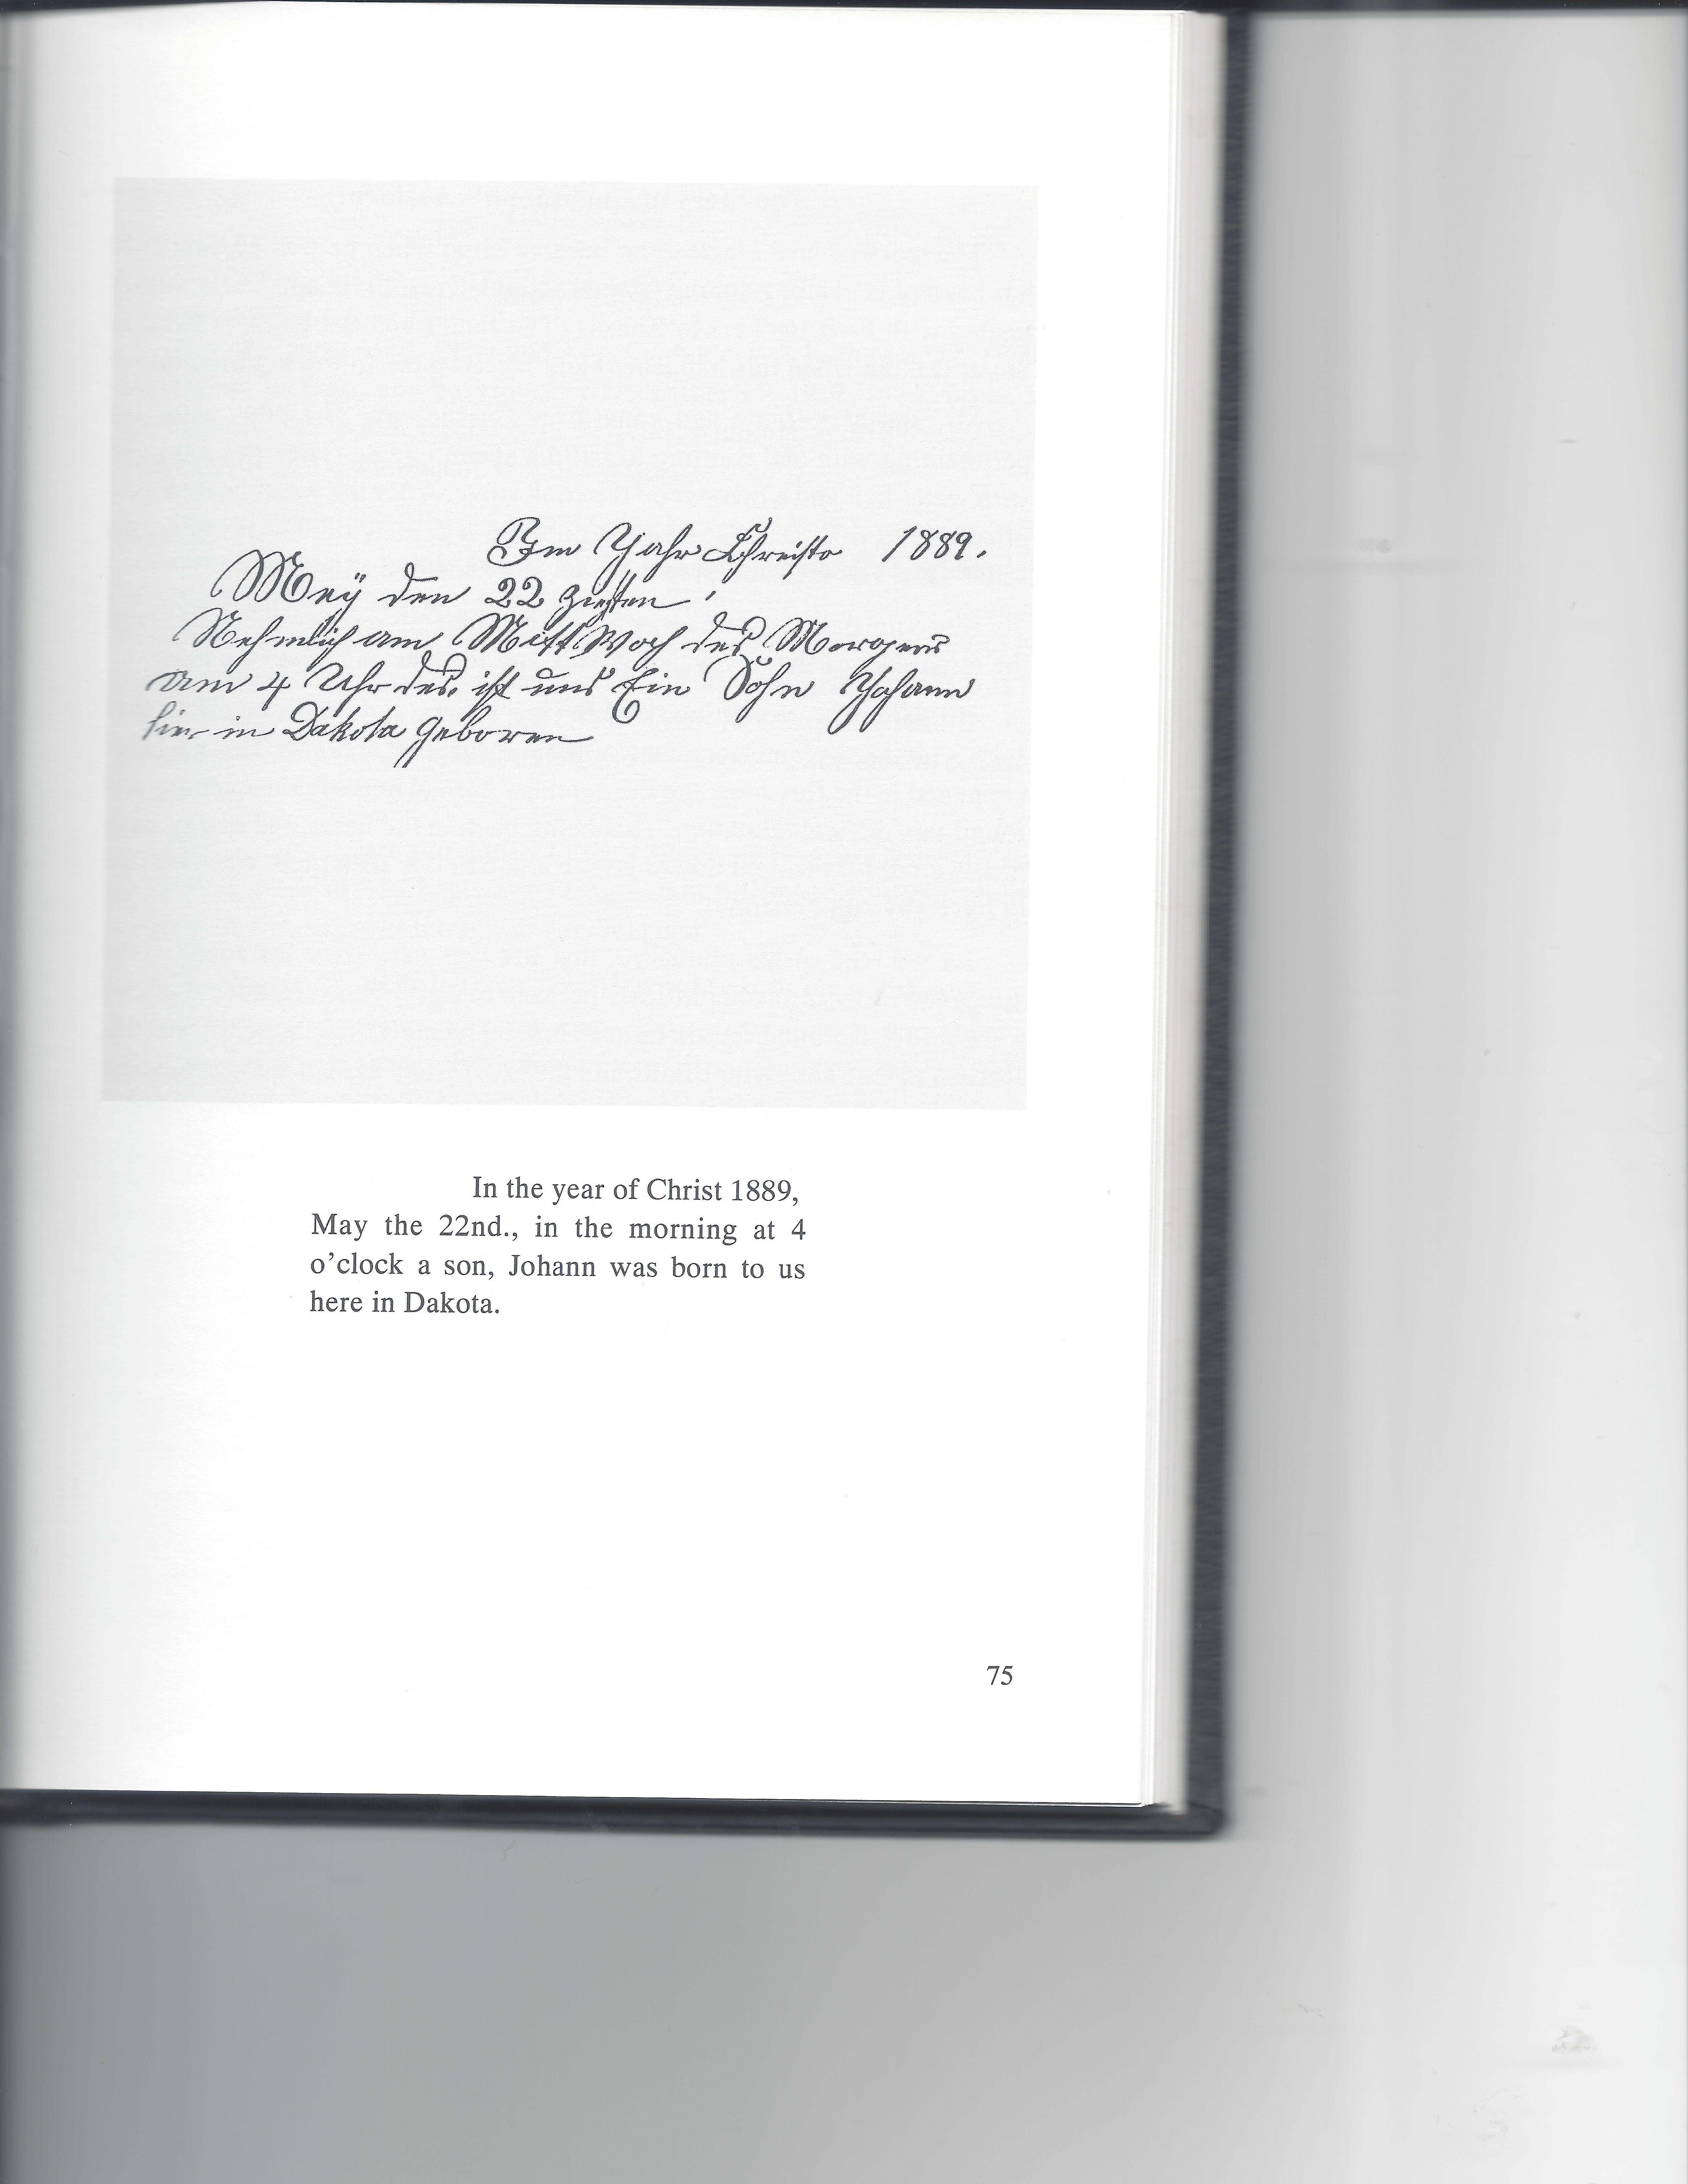 Im Jahr Christo 1889.
Mey den 22 zigsten
Nehmlich am MittWoch des Morgens
am 4 Uhr des. ist uns Ein Sohn Johann
hier in Dakota geboren
In the year of Christ 1889,
May the 22nd., in the morning at 4
o'clock a son, Johann was born to us
here in Dakota.
75